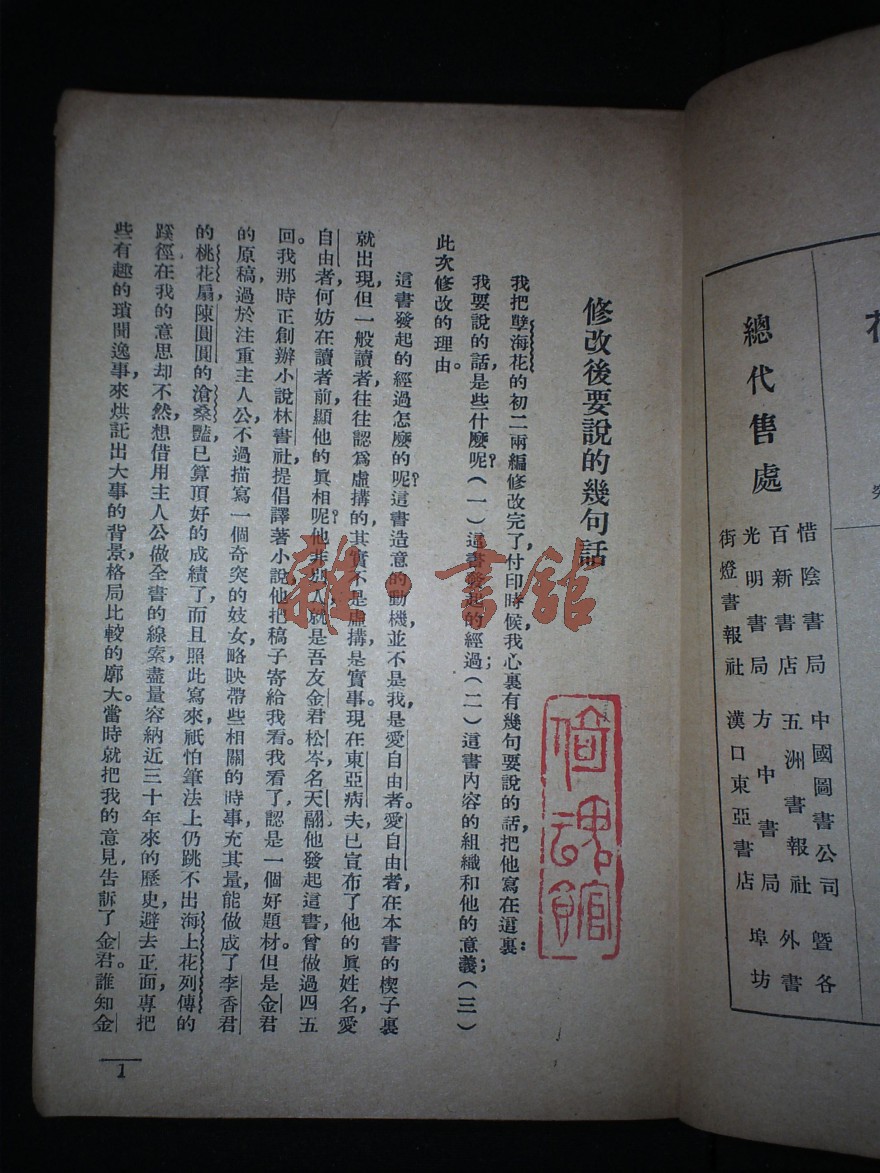 總代售處
惜陰書局 中國圖書公司 暨各
百新書店 五洲書報社 外書
光明書局 方中書局 埠坊
街燈書報社 漢口東亞書店
修改後要說的幾句話
我把孽海花的初二兩編修改完了，付印時候，我心裏有幾句要說的話，把他寫在這裏：
我要說的話，是些什麼呢？（一）這書發起的經過；（二）這書內容的組織和他的意義；（三）
此次修改的理由。
這書發起的經過怎麼的呢？這書造意的動機，並不是我，是愛自由者。愛自由者，在本書的楔子裏
就出現，但一般讀者，往往認爲虛搆的，其實不是虛搆，是實事。現在東亞病夫，已宣布了他的眞姓名，愛
自由者何妨在讀者前，顯他的眞相呢？他非別人，就是吾友金君松岑，名天翮。他發起這書，曾做過四五
回。我那時正創辦小說林書社，提倡譯著小說，他把稿子寄給我看。我看了，認是一個好題材。但是金君
的原稿，過於注重主人公，不過描寫一個奇突的妓女，略映帶些相關的時事，充其量，能做成了李香君
的桃花扇，陳圓圓的滄桑豔，已算頂好的成績了，而且照此寫來，祇怕筆法上仍跳不出海上花列傳的
蹊徑。在我的意思却不然，想借用主人公做全書的線索，盡量容納近三十年來的歷史，避去正面，專把
些有趣的瑣聞逸事，來烘託出大事的背景，格局比較的廓大。當時就把我的意見，告訴了金君。誰知金
1
雜·書館